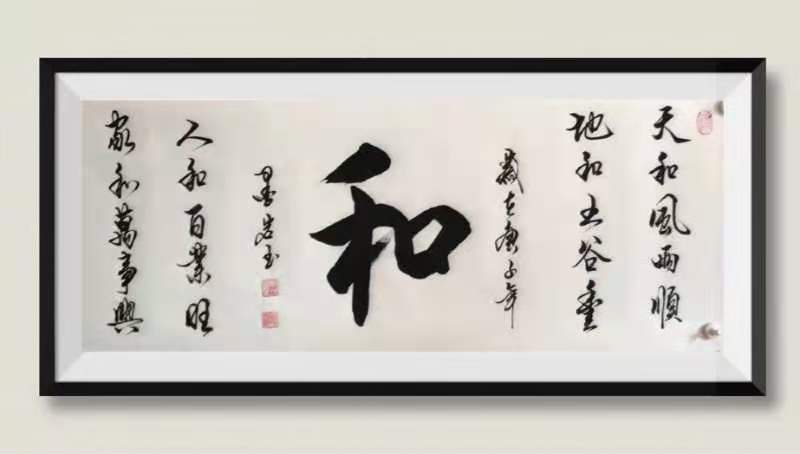 天和風雨順
地和五谷豐
歲在庚子年
和
人和百業旺
家和萬事興